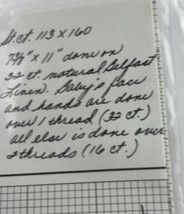 St. ct. 113 x 160
7½" x 11" done on
32 ct. natural Belfast
Linen. Baby's face
and hands are done
over 1 thread (32 ct.)
all else is done over
2 threads (16 ct.)